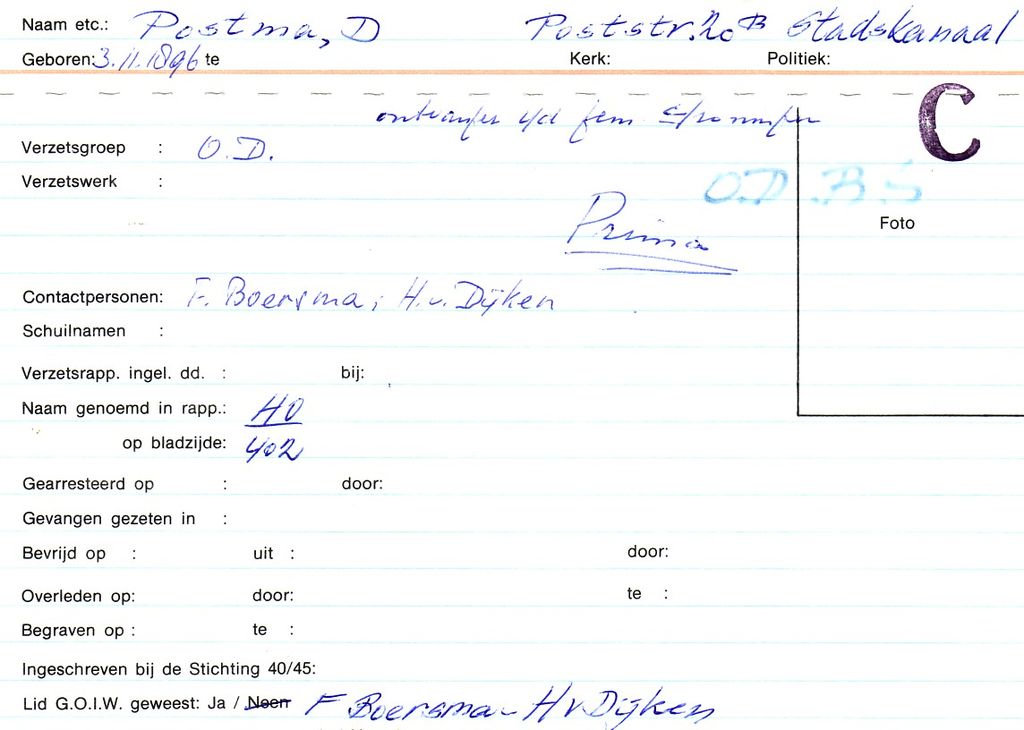 Naam etc.: Postma, D Poststr. 20 B Stadskanaal
Geboren: 3.11.1896 te Kerk: Politiek:
C
Verzetsgroep : O.D.
Verzetswerk :
O.D. B S
Foto
Prima
Contactpersonen: F. Boersma, H. v. Dijken
Schuilnamen :
Verzetsrapp. ingel. dd. : bij:
Naam genoemd in rapp.: HO
op bladzijde: 402
Gearresteerd op : door:
Gevangen gezeten in :
Bevrijd op : uit : door:
Overleden op: door: te :
Begraven op : te :
Ingeschreven bij de Stichting 40/45:
Lid G.O.I.W. geweest: Ja / Neen F Boersma - H v Dijken